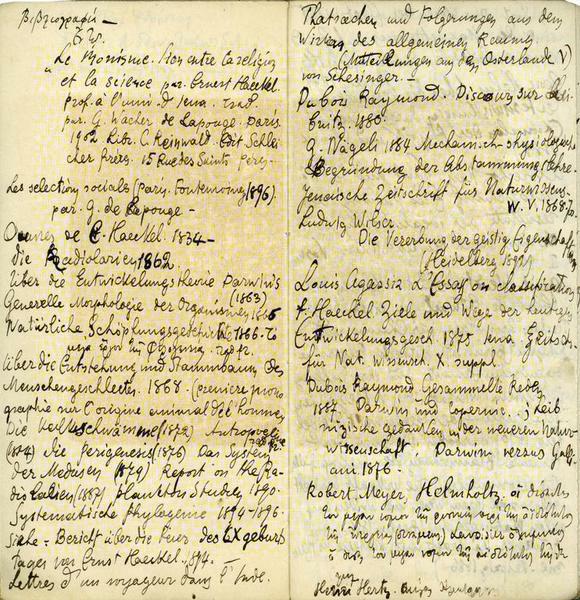 Βιβλιογραφία —
Le Monisme. lien entre la religion
et la science par. Ernest Haeckel.
prof. à l'univ. d Jena. Trad.
par. G. Vacher de Lapouge. Paris
1902 Libr. C. Reinwald. Edit. Schlei-
cher frers. 15 Rue des Saints Pères.
Les selection sociale (Pary. Fontemoing 1896).
par. G. de Lapouge —
Oeuvres de E. Haeckel. 1834—
die Radiolarien 1862.
Über die Entwickelungstheorie Darwins
(1863)
Generelle Morphologie der Organismen 1866
Natürliche Schöpfungsgeschichte 1866.
Über die Entstehung und Stammbaum des
Menschengeschlects. 1868. (première mono
graphie sur l'origine animal de l'homme)
Die Kalkschwämme (1872) Antropogenie
(1874) die Perigenesis (1876) Das System
der Medusen (1879) Report on the Ra-
diolarien (1887) Plankton Studien 1890.
Systematische Phylogenie 1894-1896.
Siehe = Bericht über die Feier des LX geburts
tages von Ernst Haeckel, 1894.
Lettres d'un voyageur dans l'Inde.
Thatsachen und Folgerungen aus dem
Wirken des allgemeinen Raumes
(Mitteilungen aus dem Osterlande V)
von Schlesinger. —
Dubois Raymond. Discours sur Lei-
bnitz. 1880.
G. Nägeli 1884 Mechanisch-physiologische
Begründung der Abstammungslehre.
Jenaische Zeitschrift für Naturwissens-
W. V. 1868.
Ludwig Wilser.
Die Vererbung der geistig Eigenschaft
(Heidelberg 1892)
Louis Agassiz L'Essay on classification
E. Haeckel. Ziele und Wege der heutigen
Entwickelungsgesch. 1875 Jena Zeitsch-
für Nat. Wissensch. X. suppl.
Dubois Raymond Gesammelte Reden
Darwin und Copernic. Leib
nizische gedanken in der neueren Natur-
wissenschaft. Darwin versus Gali-
ani 1876.
Robert Meyer, Helmholtz.
Henri Hertz.